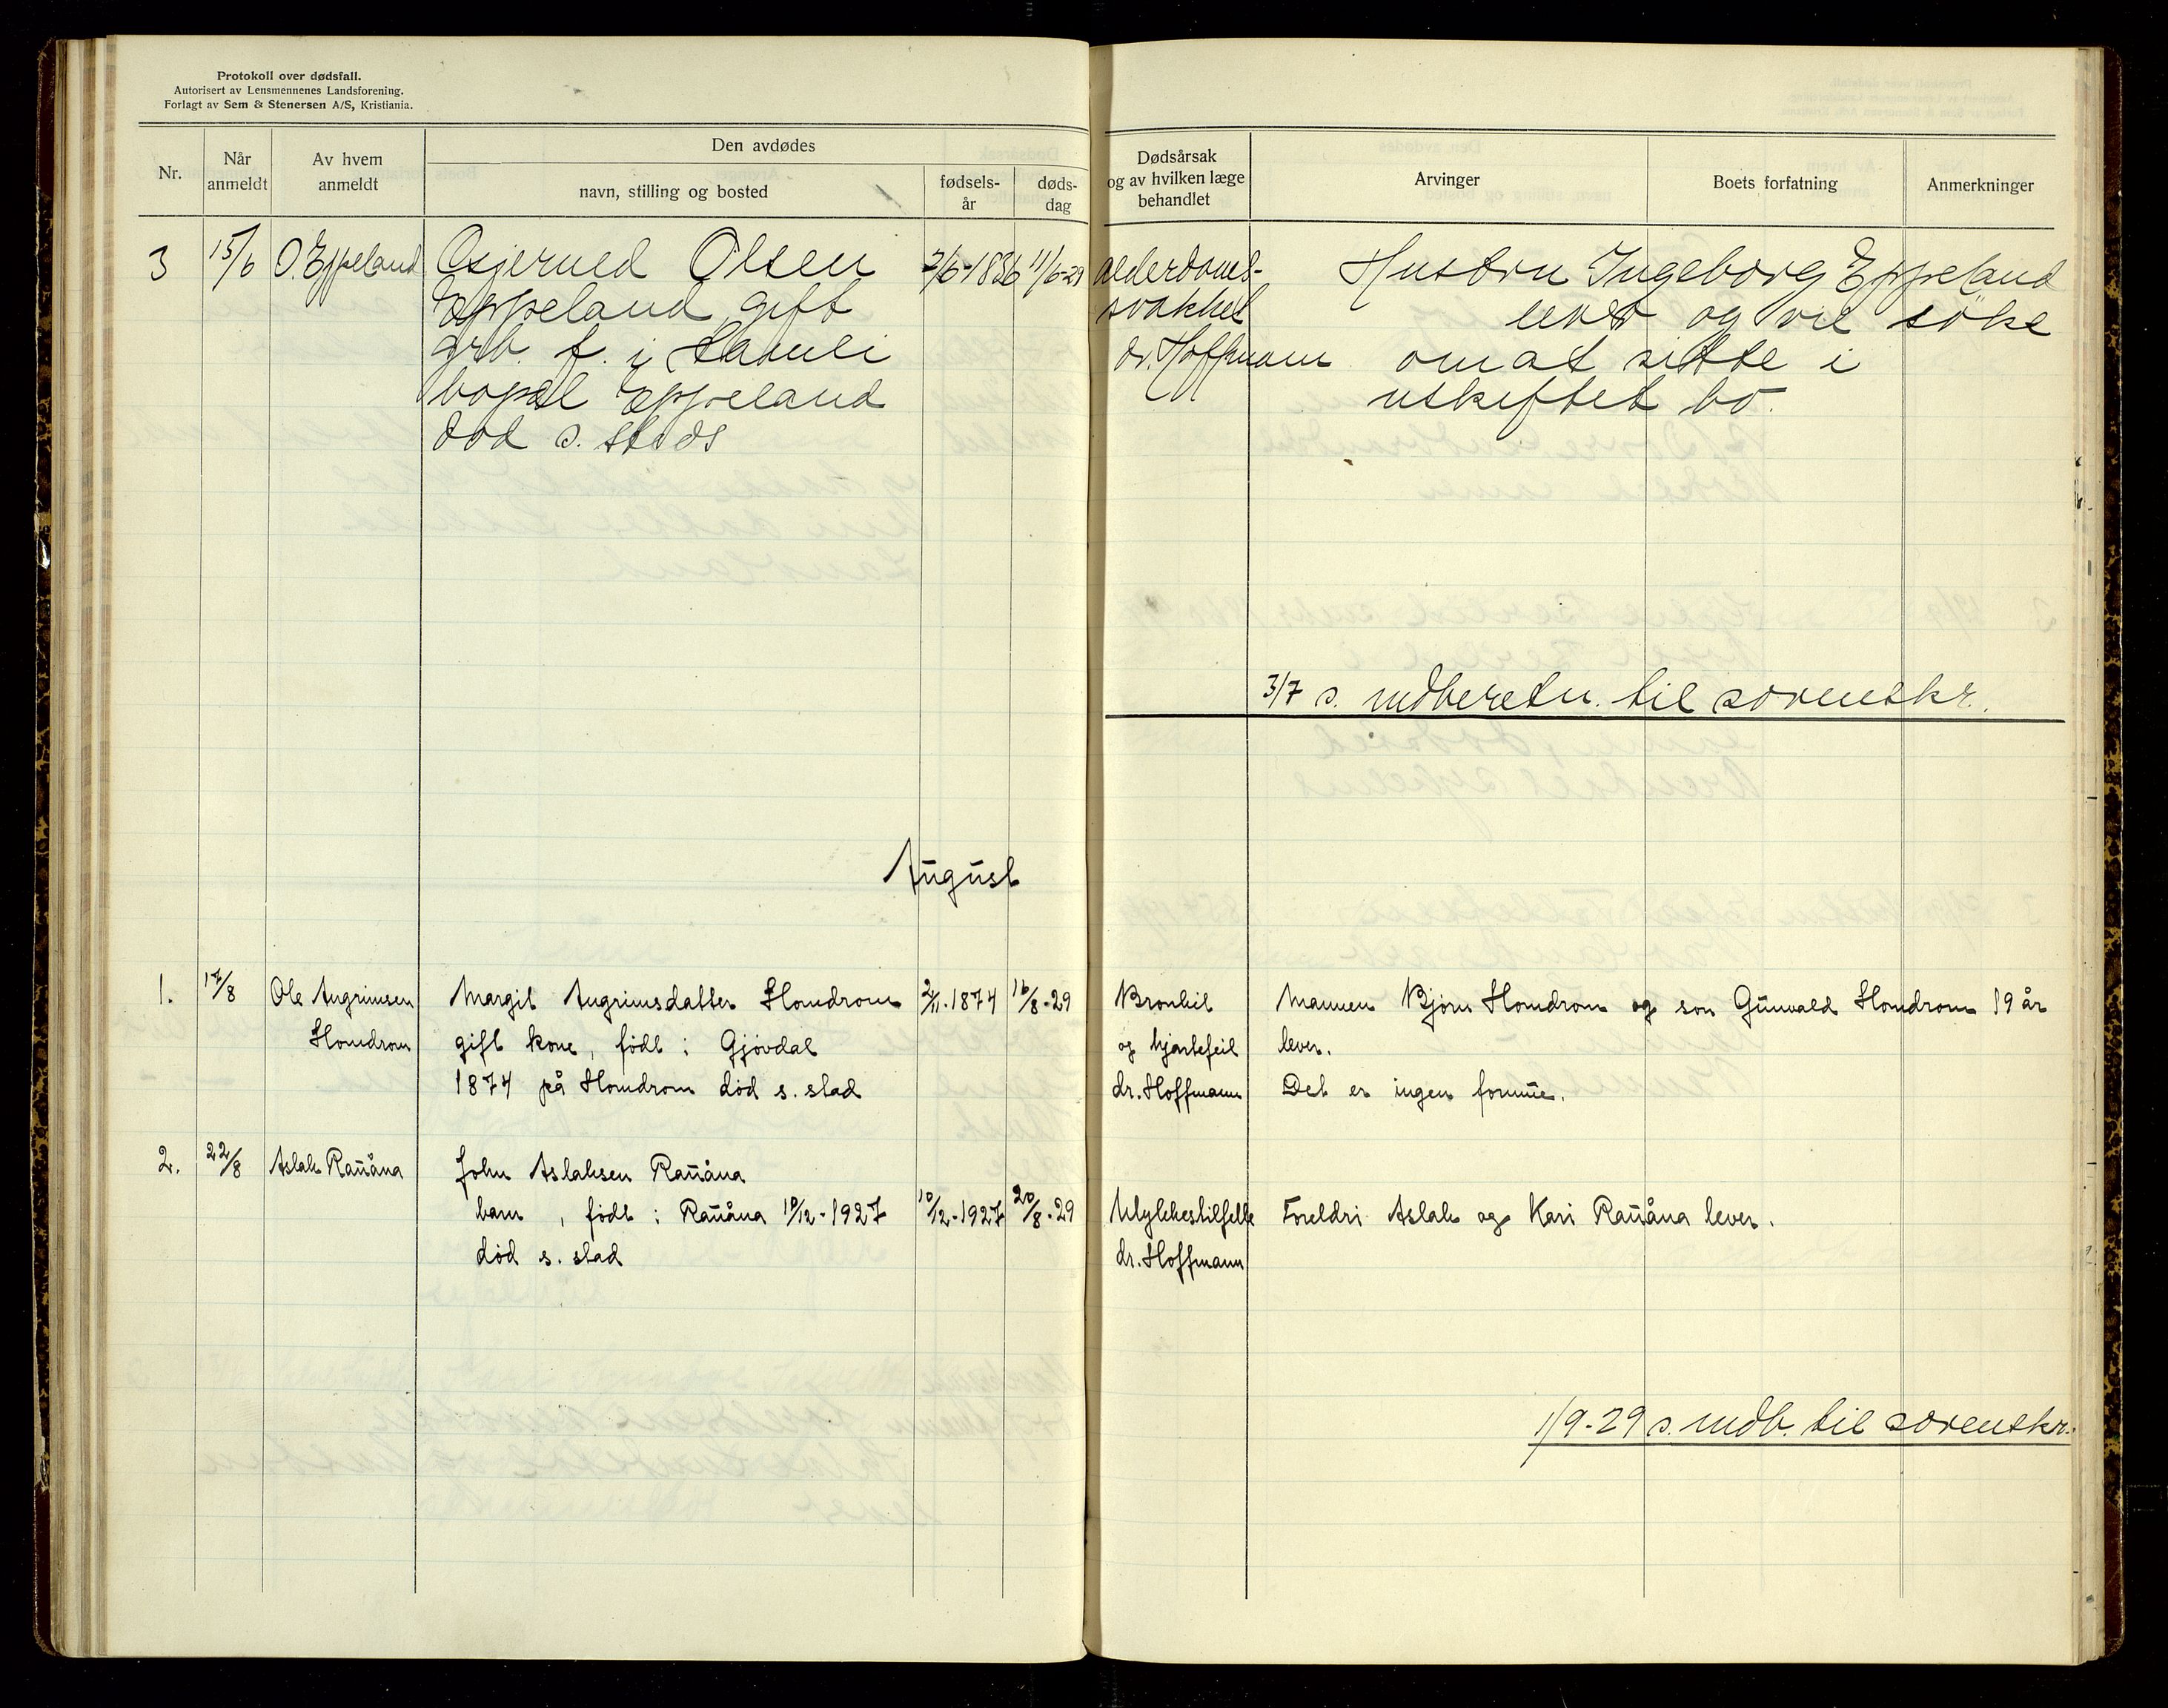 Protokoll over dødsfall.
Autorisert av Lensmennenes Landsforening.
Forlagt av Sem & Stenersen A/S, Kristiania.
Nr.
Når anmeldt
Av hvem anmeldt
Den avdødes
navn, stilling og bosted
fødsels-år
døds-dag
Dødsårsak og av hvilken læge behandlet
Arvinger
Boets forfatning
Anmerkninger
3 15/6 O. Eppeland Olsen 11/6-29 alderdoms- Hustru Ingeborg Eppeland
Eppeland gift svakhet lever og vil søke
grb. f. i Åmli dr. Hoffmann om at sitte i
bopel Eppeland uskiftet bo.
død s. steds
3/7 s. indberetn. til sorenskr.
August
1. 17/8 Ole Angrimsen Margit Angrimsdatter Homdrom 2/11-1874 16/8-29 Bronkit Mannen Bjørn Homdrom og son Gunvald Homdrom 19 år
Homdrom gift kone, født i Gjøvdal og hjartefeil lever.
1874 på Homdrom død s. stad dr. Hoffmann Det er ingen formue.
2. 22/8 Aslak Rauåna John Aslaksen Rauåna
barn, født i Rauåna 10/12-1927 10/12-1927 20/8-29 Ulykkestilfelle Foreldri Aslak og Kari Rauåna lever.
død s. stad dr. Hoffmann
1/9-29 s. indb. til sorenskr.